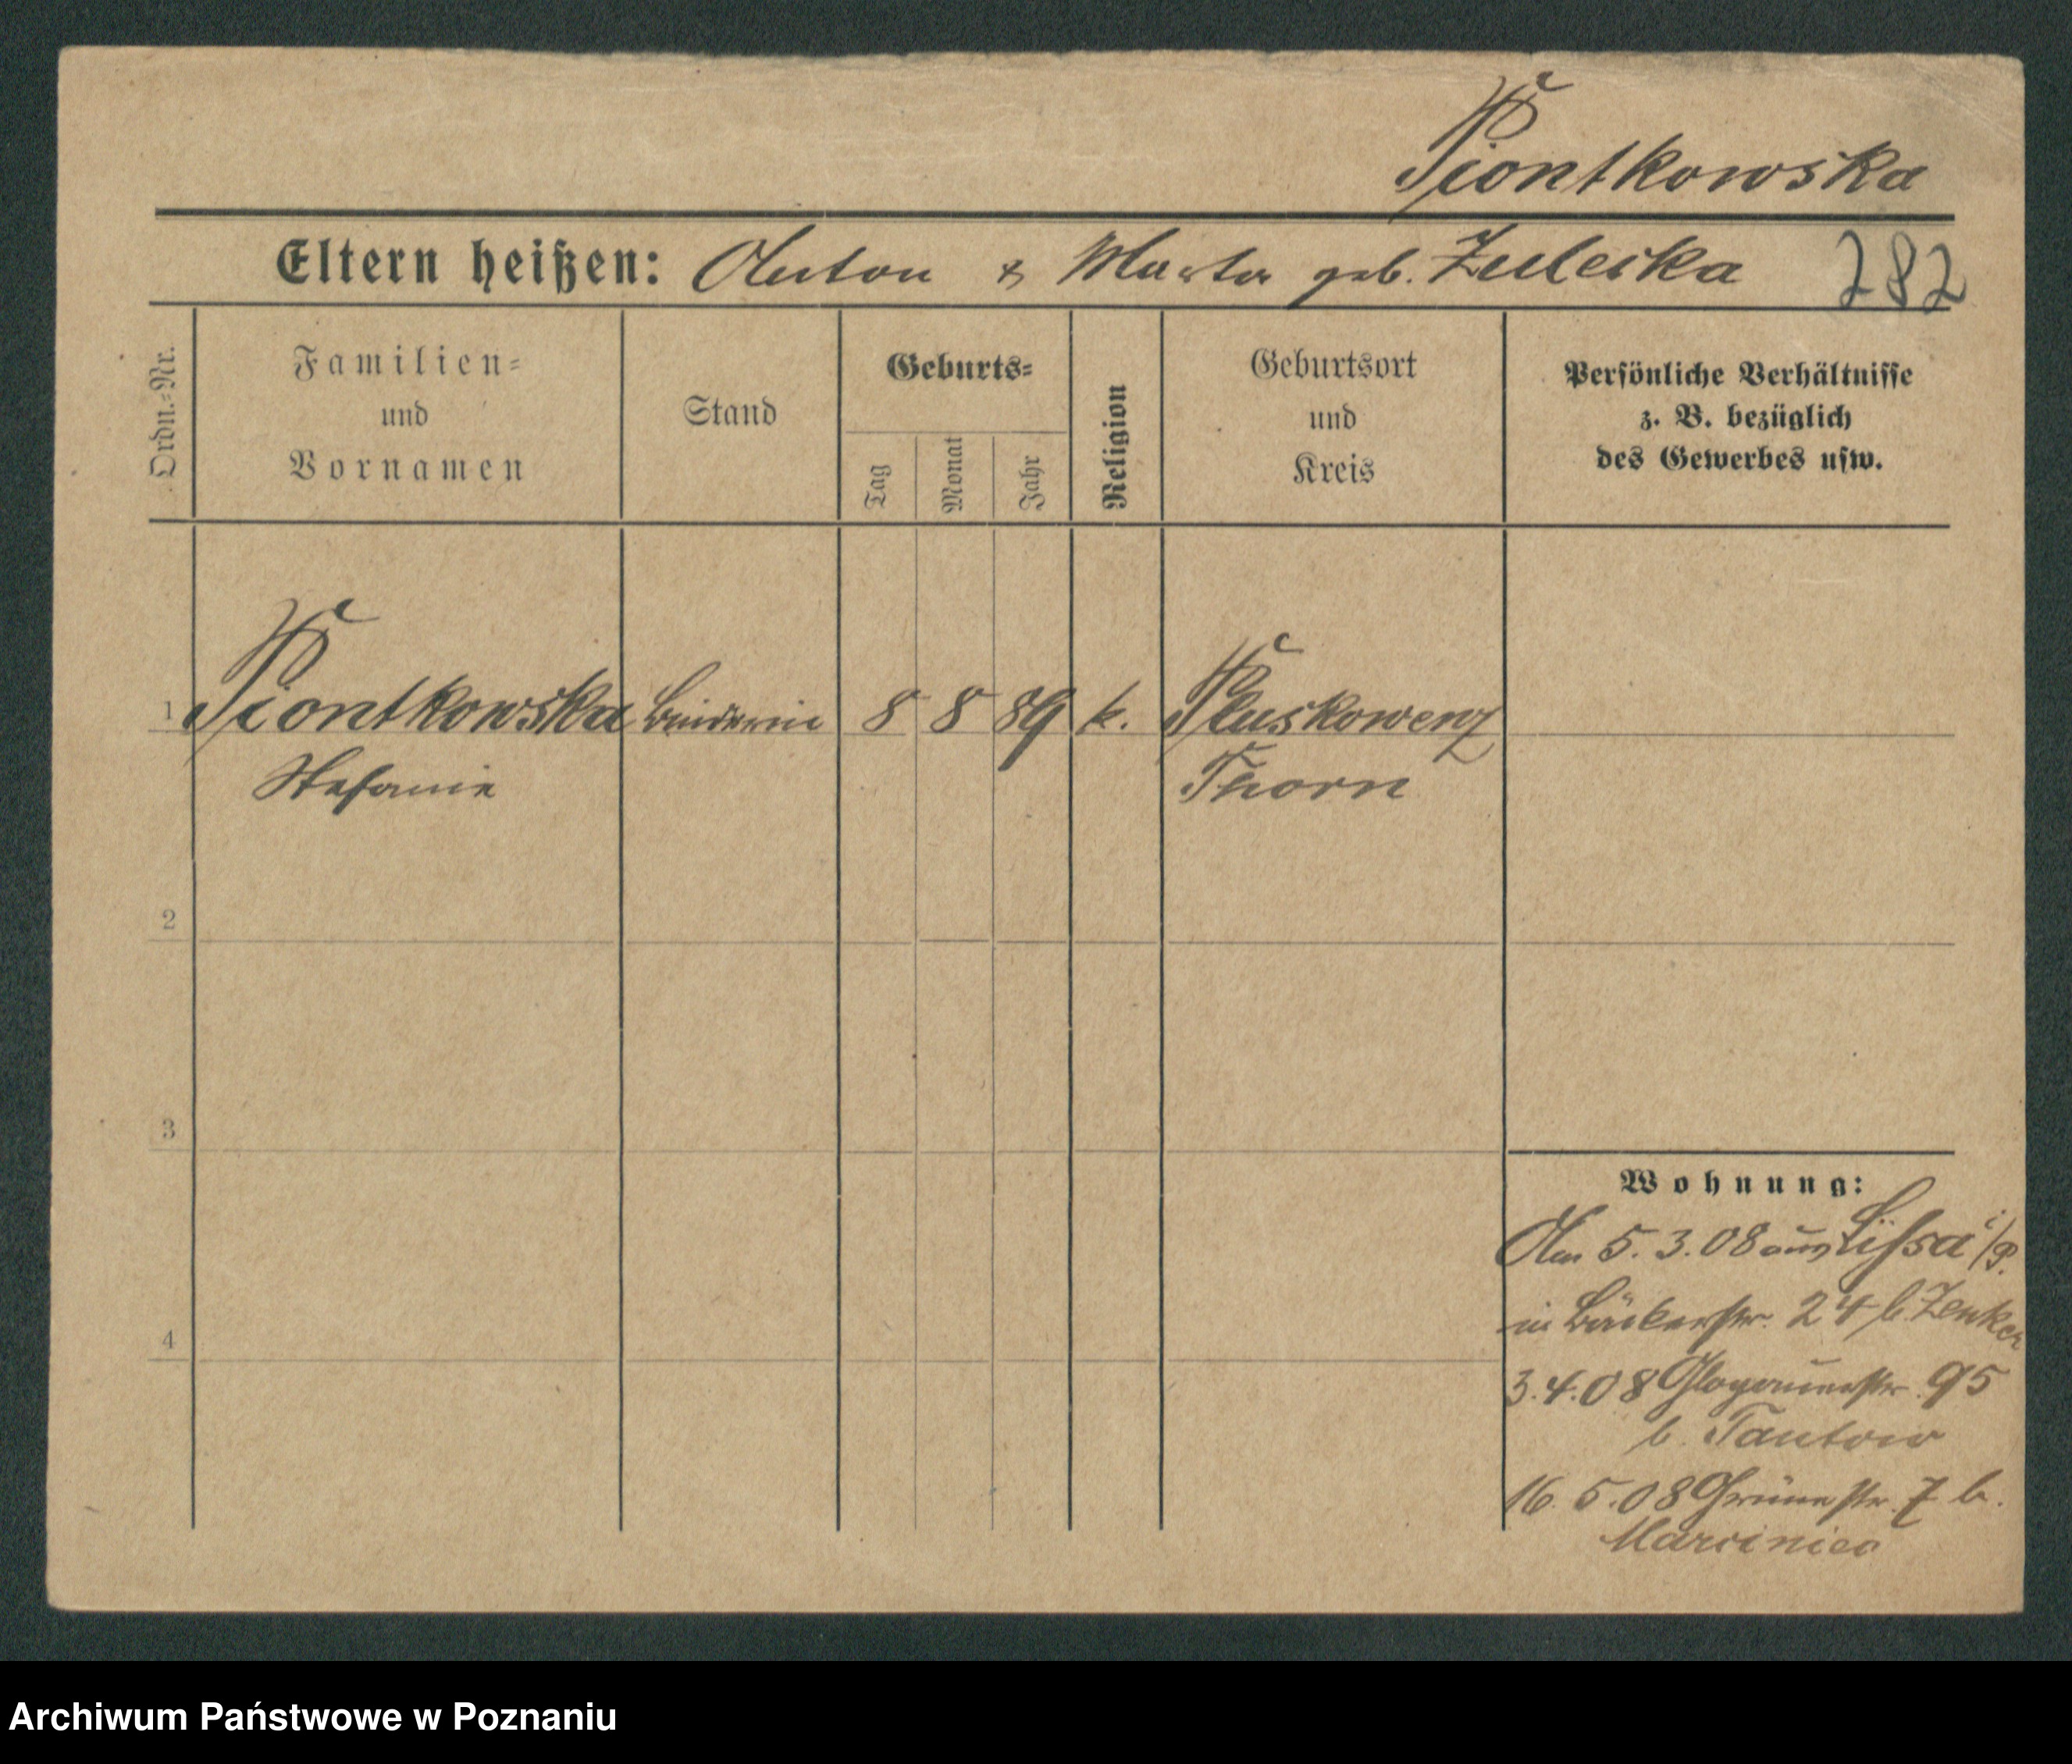 Piontkowska
Eltern heißen: Anton & Marta geb. Zuleska 282
Ordn.=Nr.
Familien=
und
Vornamen
Stand
Geburts=
Tag
Monat
Jahr
Religion
Geburtsort
und
Kreis
Persönliche Verhältnisse
z. B. bezüglich
des Gewerbes usw.
1 Piontkowska Binderin 8 8 89 k. Pluskowenz
Stefanie Thorn
2
3
4
Wohnung:
Am 5.3.08 aus Lissa i/P.
in Bäckerstr. 24 b. Zenker
3.4.08 Glogauerstr. 95
b. Tantow
16.5.08 Grünestr. 7 b.
Marciniec
Archiwum Państwowe w Poznaniu